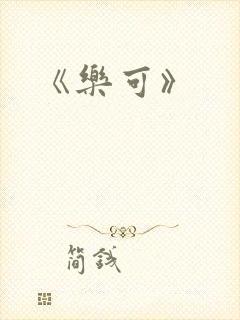 《樂可》
简錢